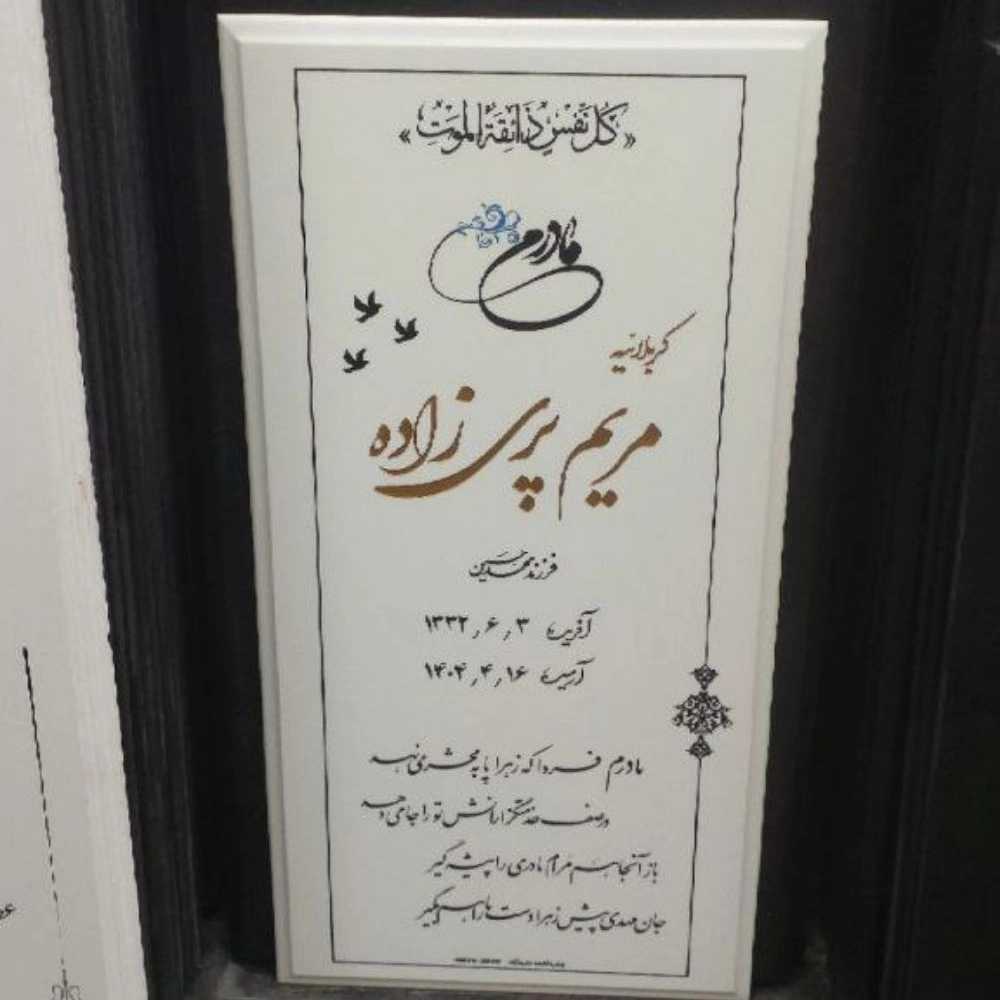 «كُلُّ نَفْسٍ ذَائِقَةُ الْمَوْتِ»
مادرم
کربلائیه
مریم پری زاده
فرزند محمدحسین
آفریده ۱۳۳۲٫۶٫۳
آرمیده ۱۴۰۴٫۴٫۱۶
مادرم فردا که زهرا پا به محشر می نهد
در صف خدمتگزارانش تو را جا می دهد
باز آنجا هم مرام مادری را پیشه گیر
جان مهدی پیش زهرا دست ما را هم بگیر